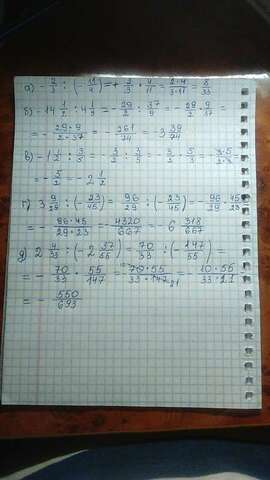 а) - 2/3 : (- 11/4) = + 2/3 · 4/11 = 2·4/3·11 = 8/33
б) -14 1/2 : 4 1/9 = - 29/2 : 37/9 = - 29/2 · 9/37 =
= - 29·9/2·37 = - 261/74 = -3 39/74
в) -1 1/2 : 3/5 = - 3/2 : 3/5 = - 3/2 · 5/3 = - 3·5/2·3 =
= - 5/2 = - 2 1/2
г) 3 9/29 : (- 23/45) = 96/29 : (- 23/45) = - 96/29 · 45/23 =
= - 96·45/29·23 = - 4320/667 = - 6 318/667
д) 2 4/33 : (-2 37/55) = 70/33 : (- 147/55) =
= - 70/33 · 55/147 = - 70·55/33·147 21 = - 10·55/33·21
= - 550/693